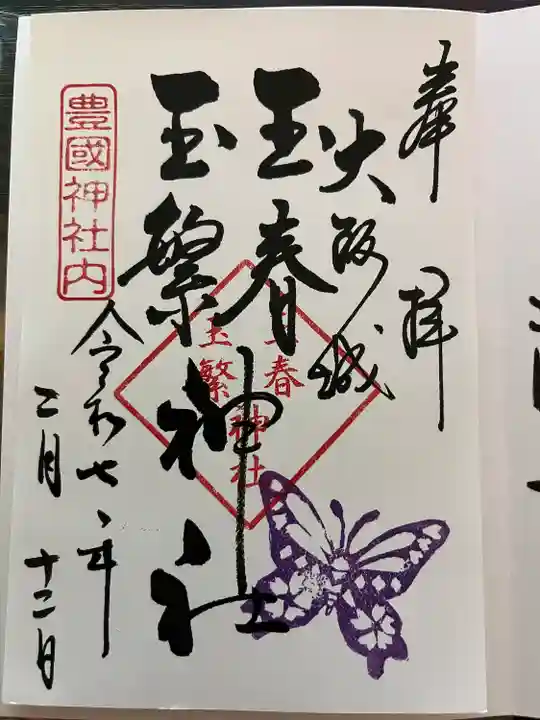 奉拝
大阪城
玉春
玉繁神社
玉春
玉繁
神社
豊國神社内
令和七年
二月
十二日